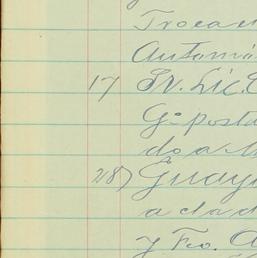 Troca
Automó
17 Sr. Lic.
Go posta
do a
287 Guay
a cla d
y Fco.